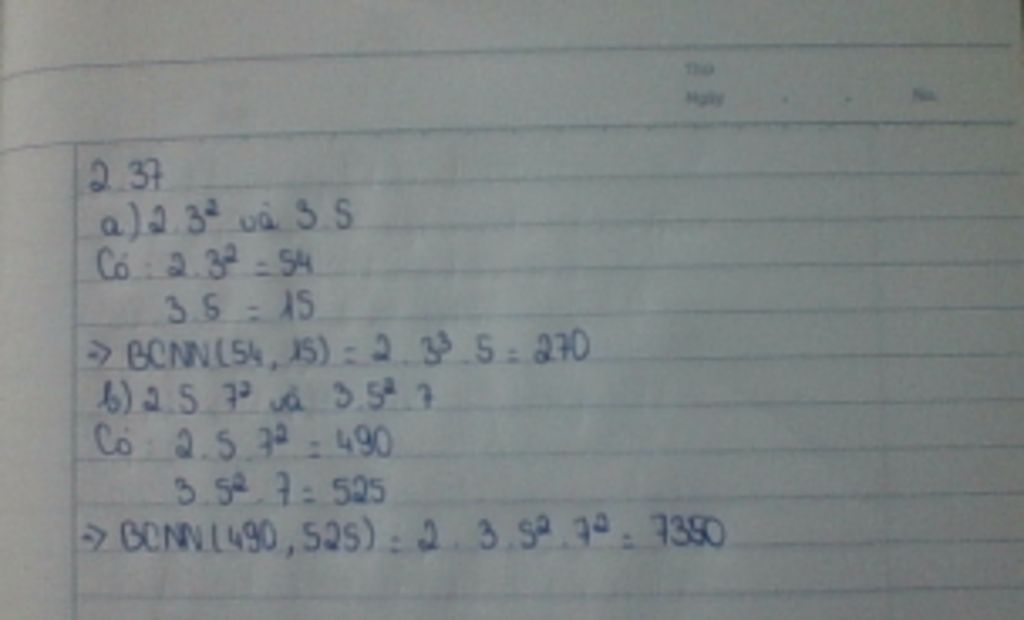 Thứ
Ngày . . No.
2.37
a) 2.3² và 3.5
Có : 2.3² = 54
3.5 = 15
=> BCNN(54, 15) = 2.3³.5 = 270
b) 2.5.7² và 3.5².7
Có : 2.5.7² = 490
3.5².7 = 525
=> BCNN(490, 525) = 2.3.5².7² = 7350